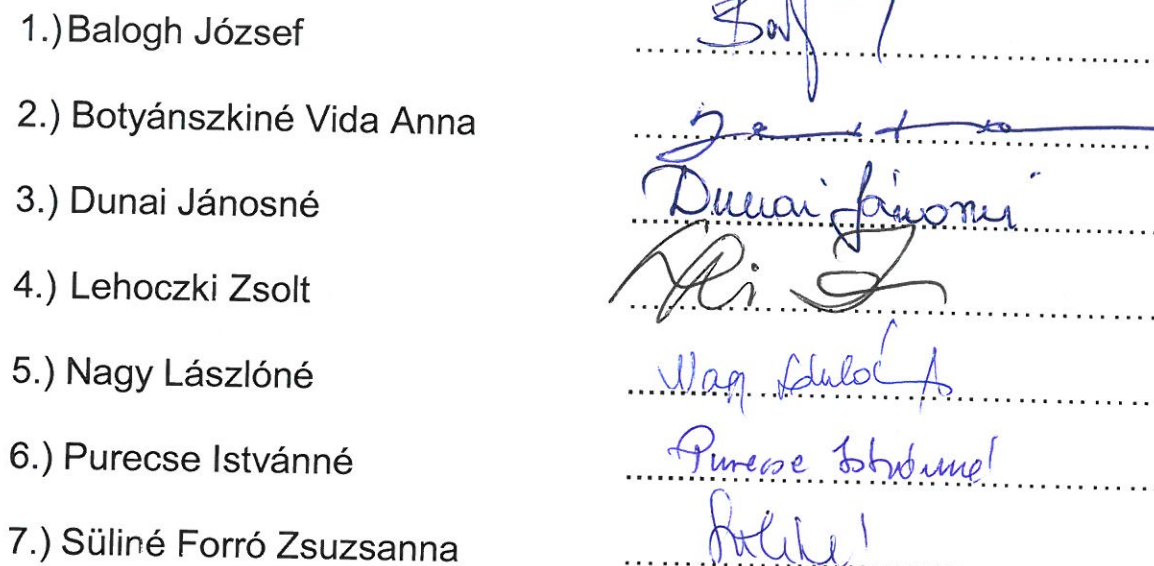 1.) Balogh József
2.) Botyánszkiné Vida Anna
3.) Dunai Jánosné Dunai Jánosné
4.) Lehoczki Zsolt
5.) Nagy Lászlóné Nagy
6.) Purecse Istvánné Purecse Istvánné
7.) Süliné Forró Zsuzsanna